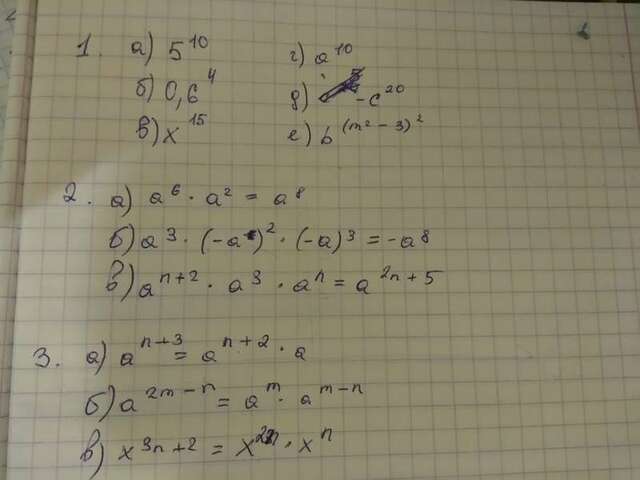 1. а) 5¹⁰ г) a¹⁰
б) 0,6⁴ д) -c²⁰
в) x¹⁵ е) b^(m² - 3)²
2. а) a⁶ · a² = a⁸
б) a³ · (-a)² · (-a)³ = -a⁸
в) aⁿ⁺² · a³ · aⁿ = a²ⁿ⁺⁵
3. а) aⁿ⁺³ = aⁿ⁺² · a
б) a²ᵐ⁻ⁿ = aᵐ · aᵐ⁻ⁿ
в) x³ⁿ⁺² = x²ⁿ · xⁿ